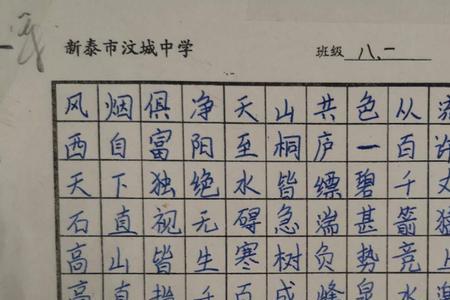 新泰市汶城中学 班级 八.一
风烟俱净天山共色从流
西自富阳至桐庐一百许
天下独绝水皆缥碧千丈
石直视无碍急湍甚箭猛
高山皆生寒树负势竞上
高直指千百成峰泉水激